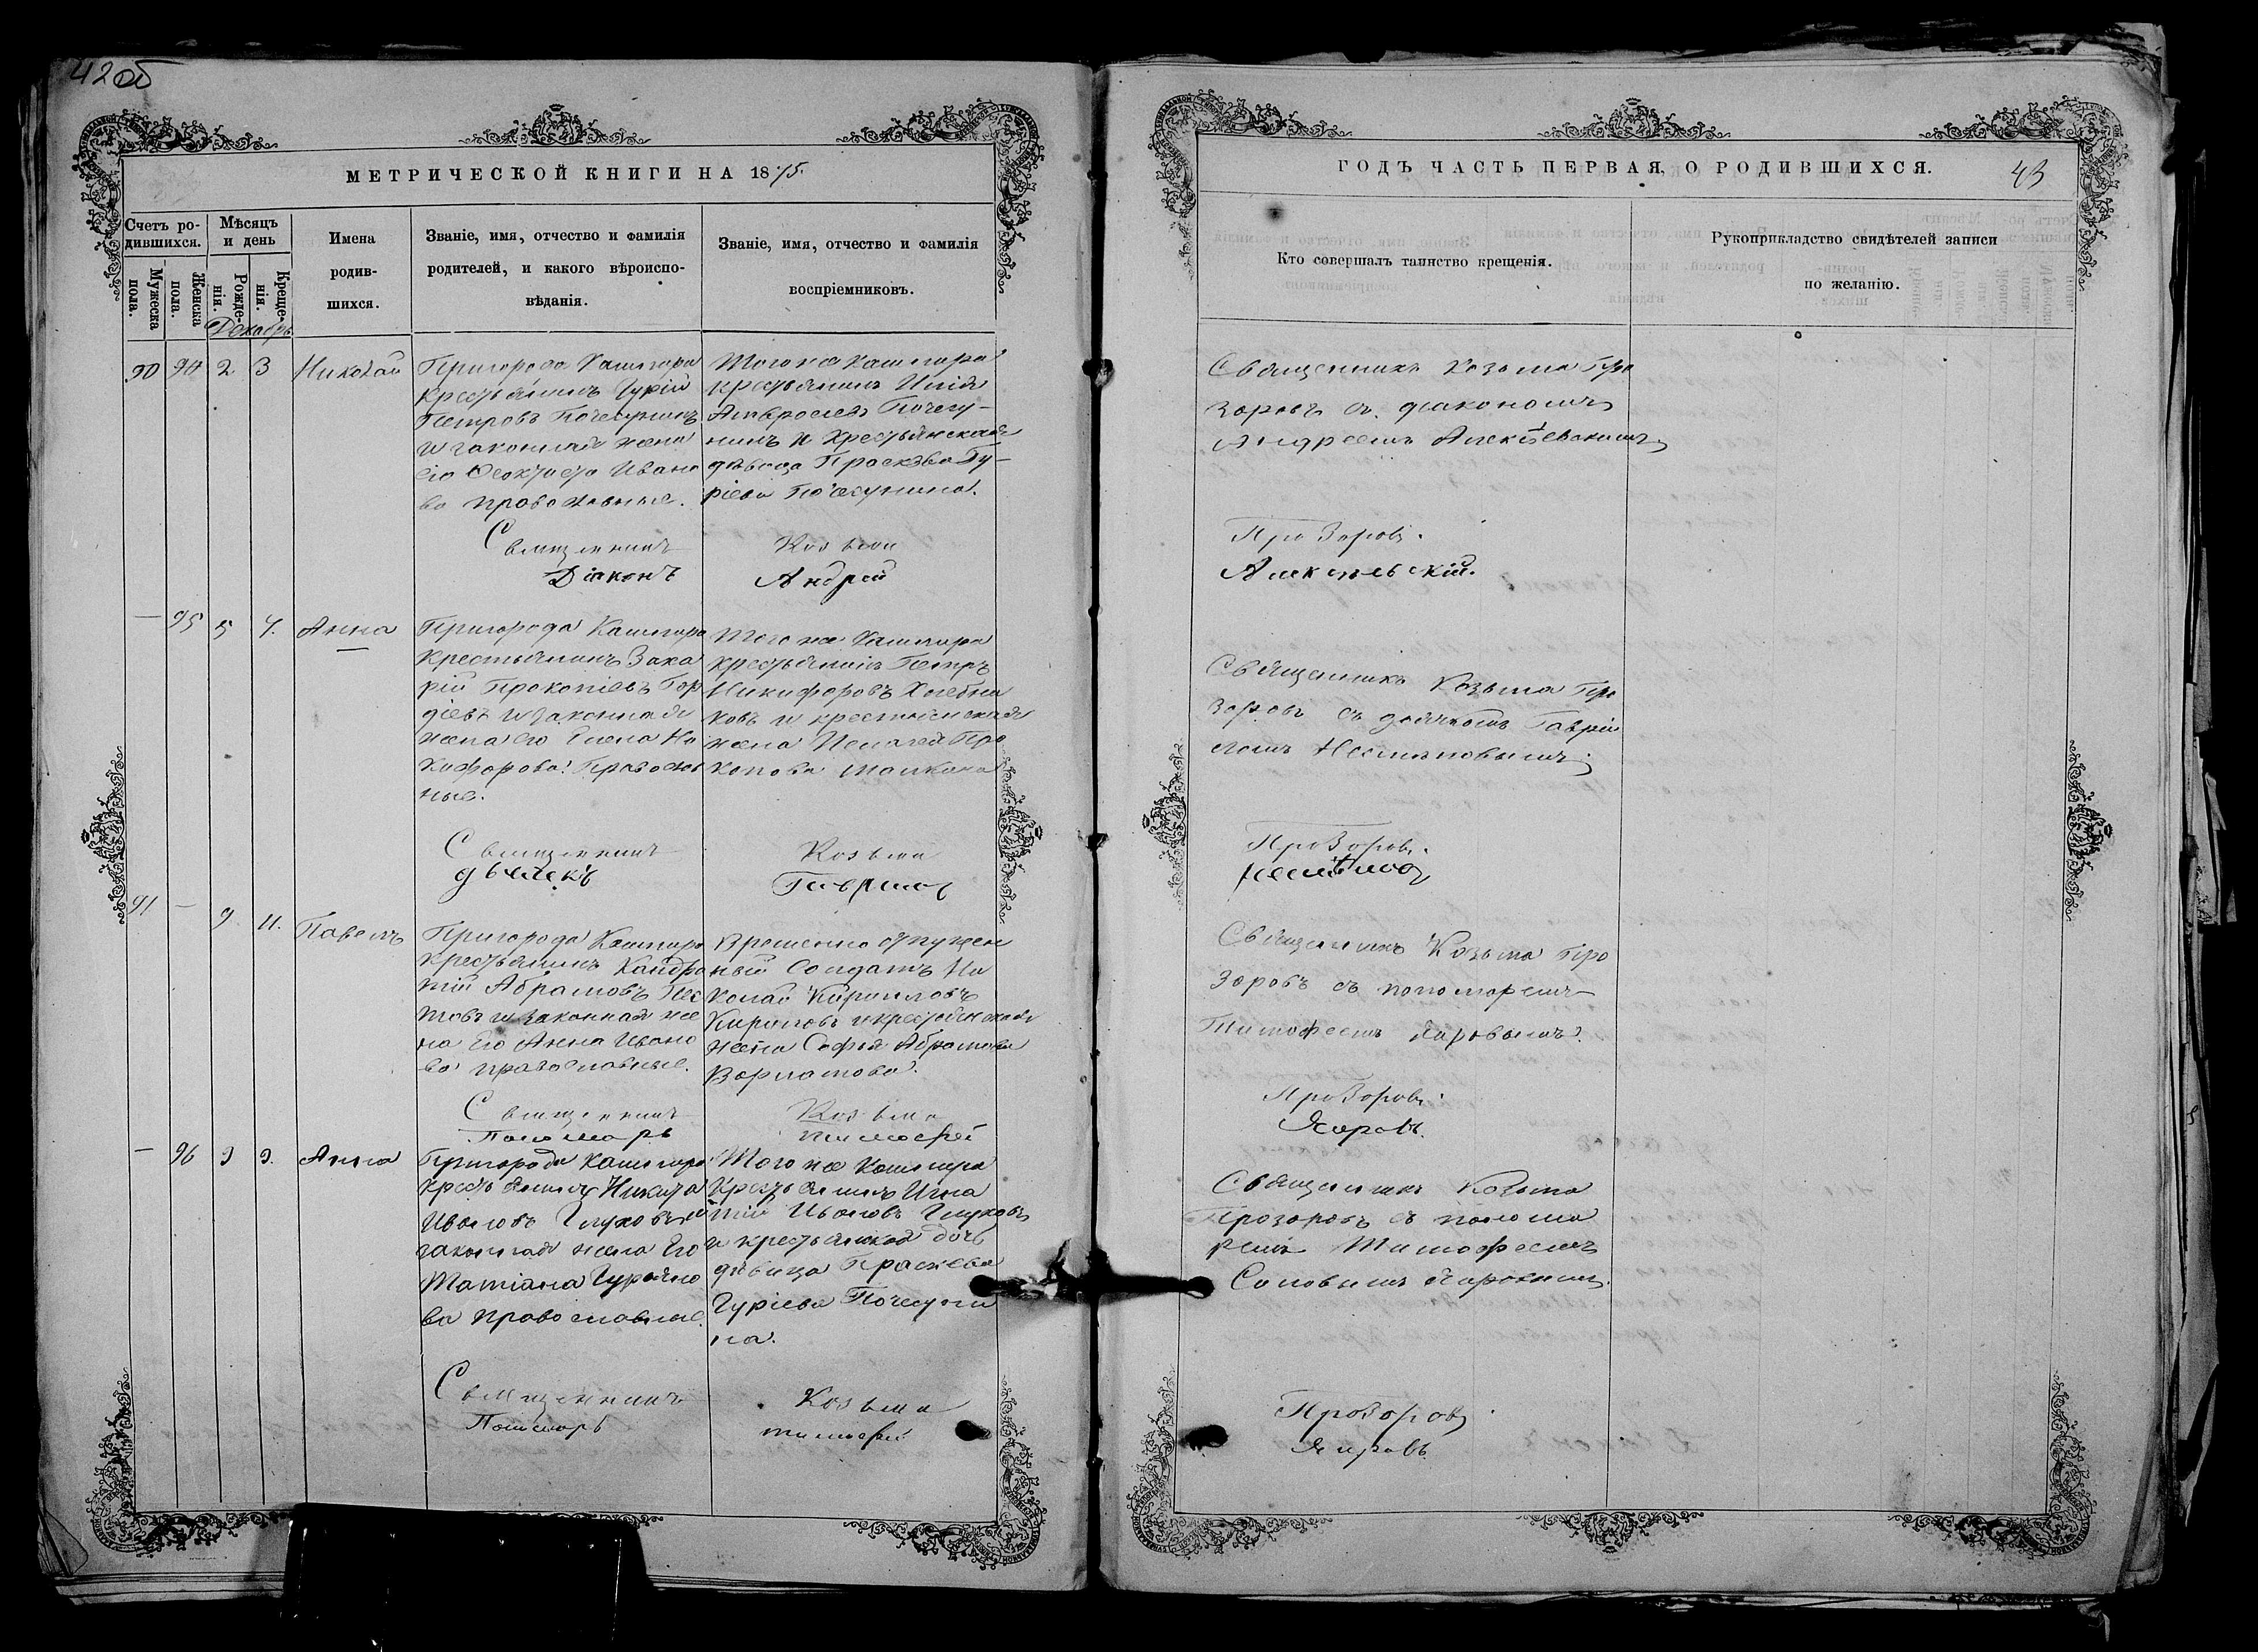 42 об
МЕТРИЧЕСКОЙ КНИГИ НА 1875.
Счетъ ро-
дившихся.
Мужеска пола.
Женска пола.
Мѣсяцъ
и день
Рожде-
нія.
Креще-
нія.
Декабрь
Имена
родив-
шихся.
Званіе, имя, отчество и фамилія
родителей, и какого вѣроиспо-
вѣданія.
Званіе, имя, отчество и фамилія
воспріемниковъ.
90 94 2 3 Николай
Пригорода Кашпира
крестьянинъ Гурій
Петровъ Почекунинъ
и законная жена
его Феоктиста Ивано
ва православные.
Тогоже Кашпира
крестьянинъ Илія
Амвросіевъ Почеку-
нинъ и крестьянская
дѣвица Праскева Гу-
ріева Почекунина.
Священникъ Козьма
Діаконъ Андрей
— 95 5 7. Анна
Пригорода Кашпира
крестьянинъ Заха
рій Прокопіевъ Гор
діевъ и законная
жена его Елена Ни
кифорова Православ
ные.
Тогоже Кашпира
крестьянинъ Петръ
Никифоровъ Хлебни
ковъ и крестьянская
жена Пелагея Про
копова
Священникъ Козьма
дьячекъ Гавріилъ
91 — 9 11. Павелъ
Пригорода Кашпира
крестьянинъ Кондра
тій Абрамовъ Пес
товъ и законная же
на его Анна Ивано
ва православные.
Временно отпущен
ный солдатъ Ни
колай Кирилловъ
и крестьянская
жена Софья Абрамова
Варламова.
Священникъ Козьма
Пономарь Тимофей
— 96 9 9. Анна
Пригорода Кашпира
крестьянинъ Никита
Ивановъ Глуховъ и
законная жена его
Татіана Гурьяно
ва православные.
Тогоже Кашпира
Крестьянинъ Игна
тій Ивановъ Глуховъ
и крестьянская дочь
дѣвица Праскева
Гуріева Почекуни
на.
Священникъ Козьма
Пономарь Тимофей
ГОДЪ ЧАСТЬ ПЕРВАЯ, О РОДИВШИХСЯ.
43
Кто совершалъ таинство крещенія.
Рукоприкладство свидѣтелей записи
по желанію.
Священникъ Козьма Про
зоровъ съ діакономъ
Андреемъ Алексѣевскимъ
Прозоровъ.
Алексѣевскій.
Священникъ Козьма Про
зоровъ съ дьячкомъ Гаврі
иломъ
Прозоровъ.
Священникъ Козьма Про
зоровъ съ пономаремъ
Тимофеемъ Яировымъ.
Прозоровъ.
Яировъ.
Священникъ Козьма
Прозоровъ съ понома
ремъ Тимофеемъ
Яировымъ.
Прозоровъ
Яировъ.